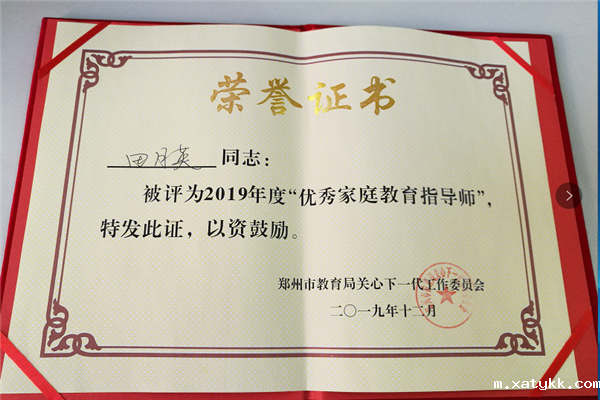 荣誉证书
田月英 同志：
被评为2019年度“优秀家庭教育指导师”，
特发此证，以资鼓励。
郑州市教育局关心下一代工作委员会
二〇一九年十二月
m.xatykk.com